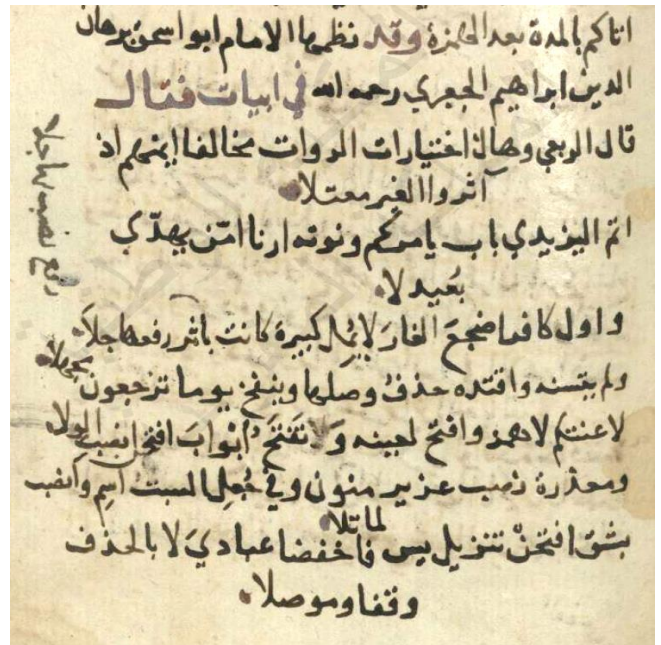 اتاكم بالمدة بعد الهمزة وقد نظمها الامام ابو اسحق برهان
الدين ابراهيم الجعبري رحمه الله في ابيات فقال
قال الربعي وهاك اختيارات الروات مخالفا ايمنهم اذ
آثروا الغير معتلا
اتم اليزيدي باب يامركم ونوته ارنا امّن يهدّي
بعيد لا
واول كافر اضجعَ الغارَ لا يُمل كبيرة كانت باثر رفعها جلاَ
ولم يتسنه واقتده حذفُ وصلها وينفخ يوما ترجعون بجهلا
لاعنتكم لا همز وافتح لعينه وَلا تفتحُ ابوابَ افتحن انصب الولا
ومعذرة نصب عزير منون وفي جُعِل السبت اسِم وانصب
لما تلا
بشق افتحنّ تنزيل يس فاخفضا عباديَ لا بالحذف
وقفا وموصلا
رفع نصب بها جلا